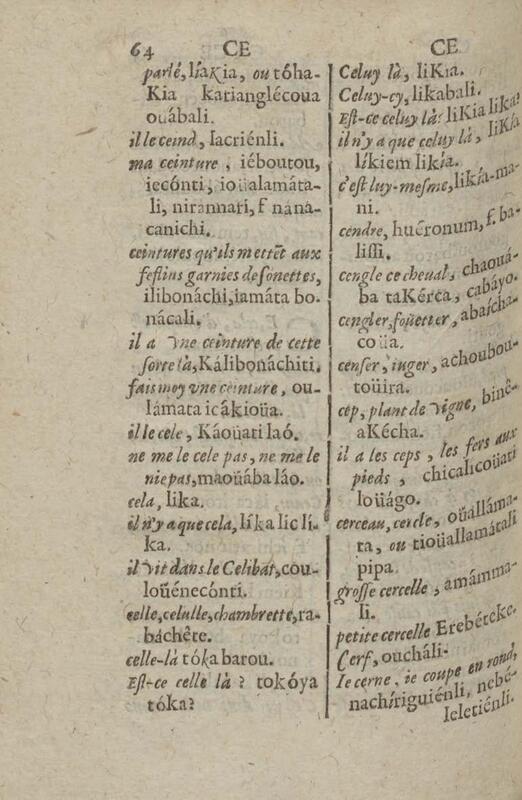 64 CE
parlé, líaKia, ou tóha-
Kia karianglécoua
ouábali.
il le ceind, Iacriénli.
ma ceinture, iéboutou,
iecónti, ioüalamáta-
li, niránnari, f nána-
canichi.
ceintures qu'ils mettēt aux
festins garnies de sonettes,
ilibonáchi, iamáta bo-
nácali.
il a vne ceinture de cette
sorte là, Kálibonáchiti.
fais moy vne ceinture, ou-
lámata icákioüa.
il le cele, Káoüati laó.
ne me le cele pas, ne me le
nie pas, maoüába láo.
cela, lika.
il n'y a que cela, líka lic lí-
ka.
il vit dans le Celibat, cou-
loüénecónti.
celle, celulle, chambrette, ra-
báchête.
celle-là tóka barou.
Est-ce celle là ? tokóya
tóka?
CE
Celuy là, liKia.
Celuy-cy, likabali.
Est-ce celuy là: liKia lika?
il n'y a que celuy là, liKía
líkiem likía.
c'est luy-mesme, likía-ma-
ni.
cendre, huéronum, f. ba-
lissi.
cengle ce cheual, chaouá-
ba taKérca, cabáyo.
cengler, foüetter, abaícha-
coüa.
censer, iuger, achoubou-
toüira.
cep, plant de vigne, binê-
aKécha.
il a les ceps, les fers aux
pieds, chicalicoüati
loüágo.
cerceau, cercle, oüálláma-
ta, ou tioüallamátali
pipa.
grosse cercelle, amámma-
li.
petite cercelle Erebéteke.
Cerf, oucháli.
Ie cerne, ie coupe en rond,
nachíriguiénli, nebé-
leletiénli.